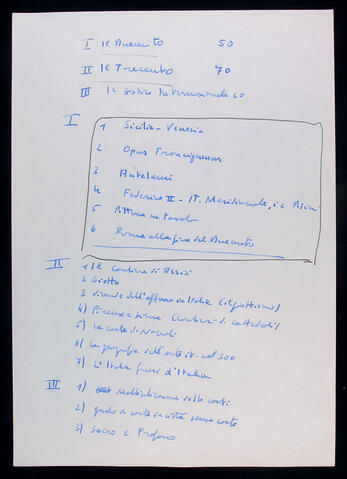 I Il Duecento 50
II Il Trecento 70
III Il Gotico Internazionale 60
I
1 Sicilia - Venezia
2 Opus Francigenum
3 Antelami
4 Federico II - IT. Meridionale, i e Pisani
5 Pittura su tavola
6 Roma alla fine del Duecento
II
1 Il Cantiere di Assisi
2 Giotto
3 vicende dell'affresco in Italia (il giottismo)
4) Firenze e Siena (Cantieri di Cattedrali)
5) La corte di Napoli
6) La geografia dell'arte it. nel 300
7) L'Italia fuori d'Italia
III
1) Moltiplicazione delle corti
2) gusto di corte in città senza corte
3) Sacro e Profano